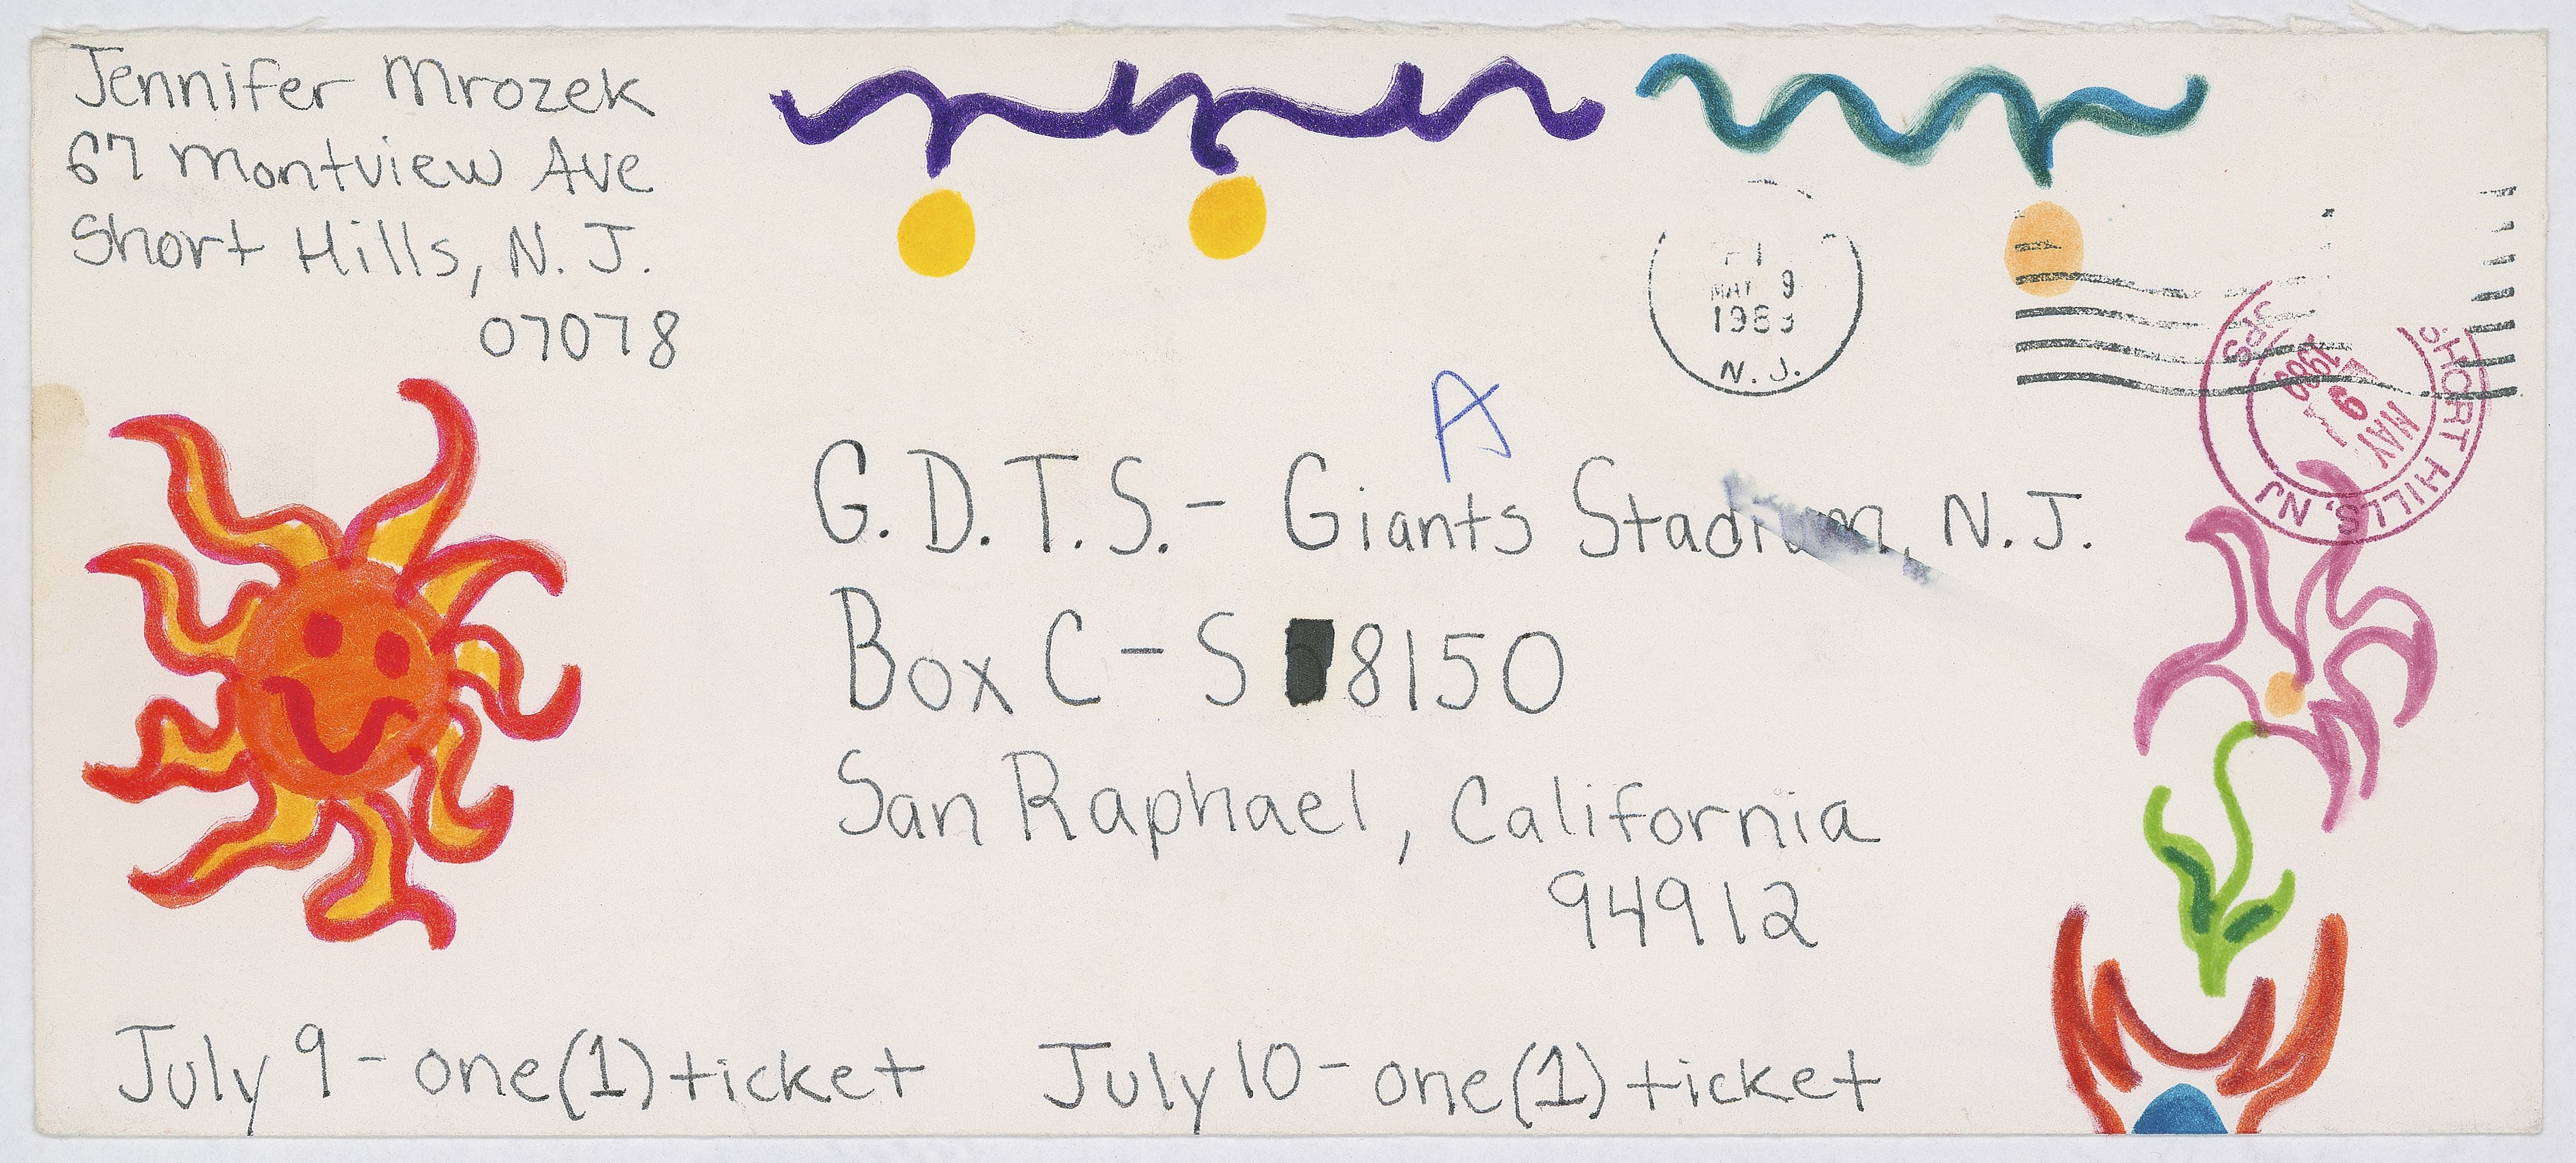 Jennifer Mrozek
67 Montview Ave
Short Hills, N.J.
07078
MAY 9
1989
N.J.
SHORT HILLS, NJ
MAY
9
1989
A
G.D.T.S.- Giants Stadium, N.J.
Box C-S 8150
San Raphael, California
94912
July 9 - one (1) ticket July 10 - one (1) ticket